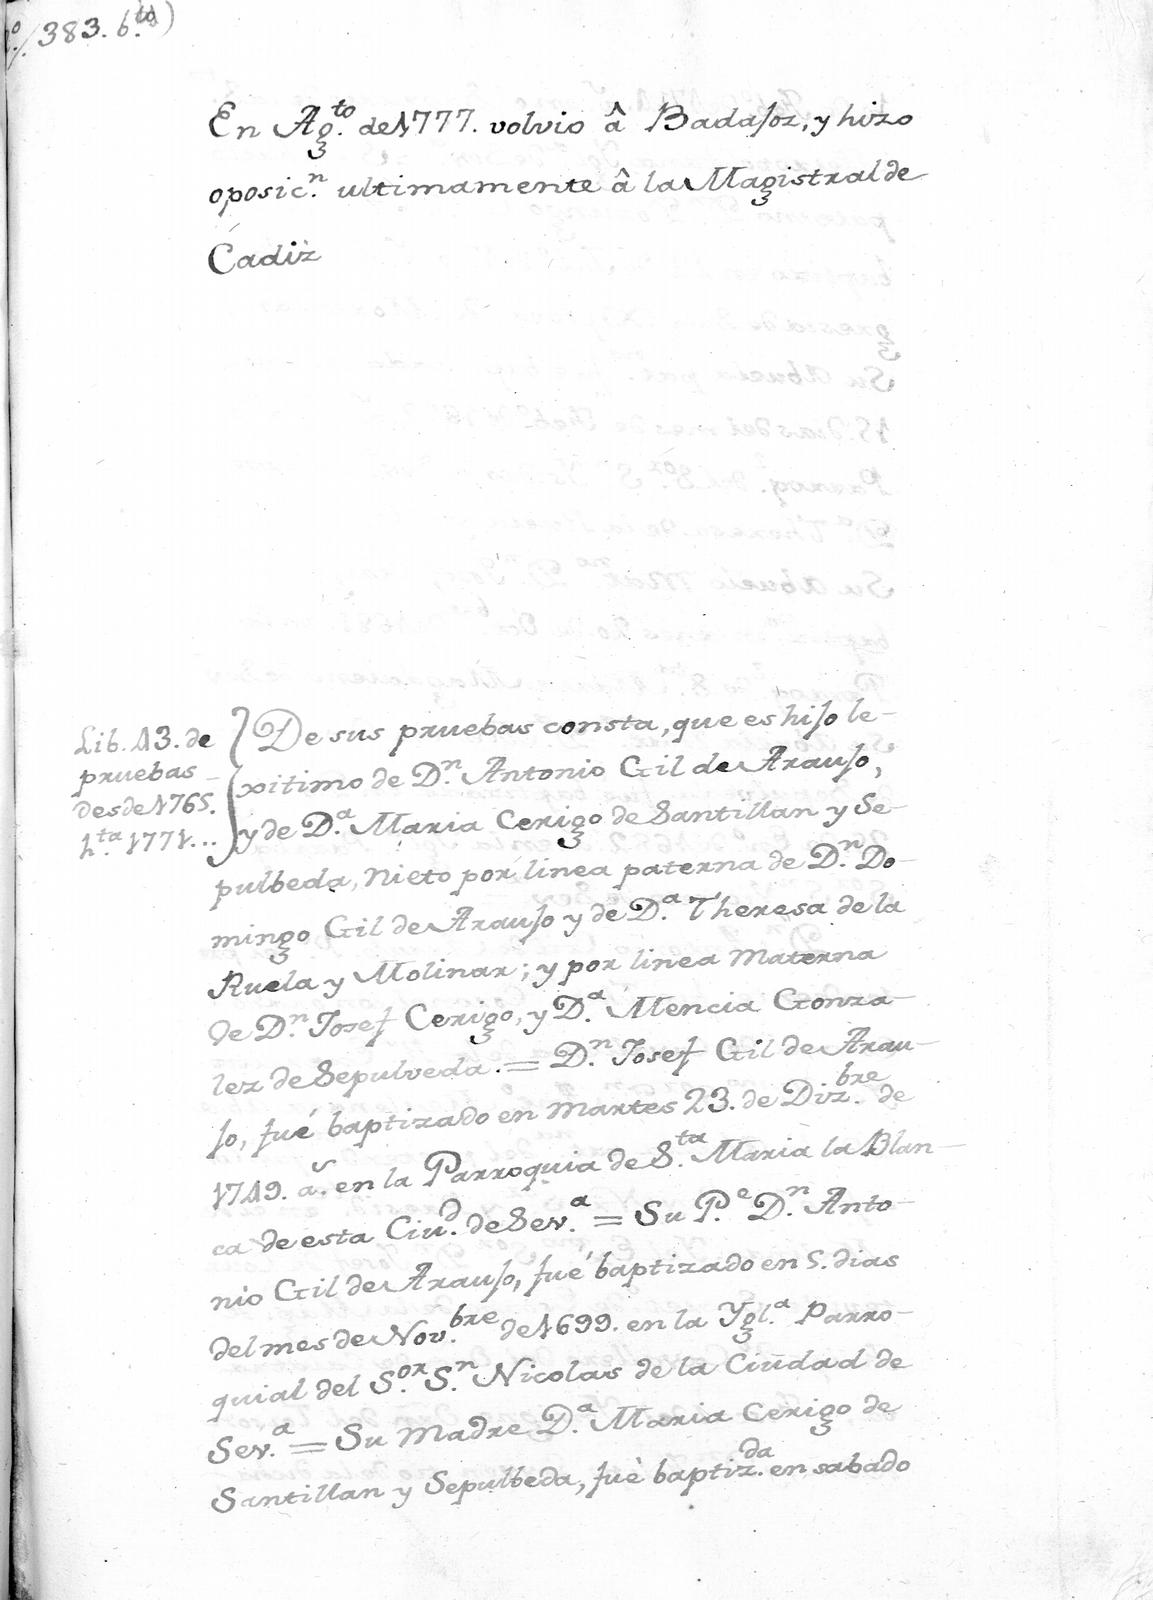 383. b.to)
En Ag.to de 1777. volvio â Badajoz, y hizo
oposic.n ultimamente â la Magistral de
Cadiz
Lib. 13. de
pruebas
desde 1765.
h.ta 1771...
De sus pruebas consta, que es hijo le-
xitimo de D.n Antonio Gil de Araujo,
y de D.a Maria Cerigo de Santillan y Se-
pulbeda, Nieto por linea paterna de D.n Do-
mingo Gil de Araujo y de D.a Theresa de la
Ruela y Molinar; y por linea Materna
de D.n Josef Cerigo, y D.a Mencia Gonza-
lez de Sepulveda. = D.n Josef Gil de Arau-
jo, fué baptizado en Martes 23. de Diz.bre de
1749. a.s en la Parroquia de S.ta Maria la Blan-
ca de esta Ciu.d de Sev.a = Su P.e D.n Anto-
nio Gil de Araujo, fué baptizado en 5. dias
del mes de Nov.bre de 1699. en la Ygl.a Parro-
quial del S.or S.n Nicolas de la Ciudad de
Sev.a = Su Madre D.a Maria Cerigo de
Santillan y Sepulbeda, fuè baptiz.da en sabado